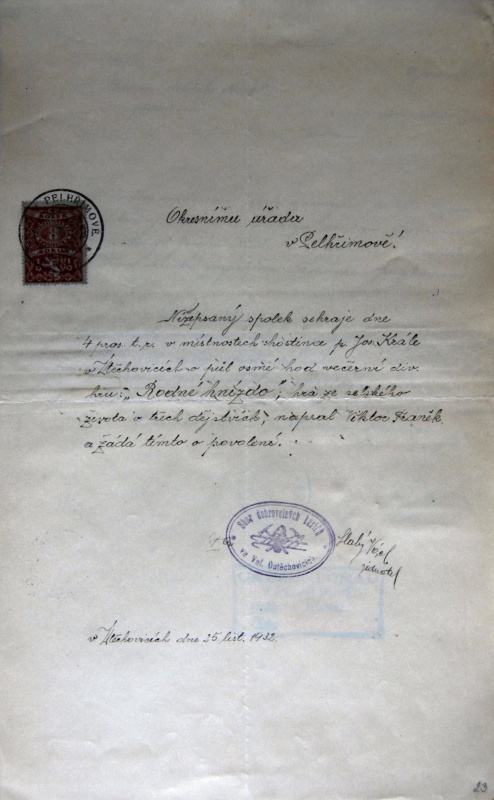 PELHŘIMOVĚ.
Okresnímu úřadu
v Pelhřimově!
Nížepsaný spolek sehraje dne
4 pros. t.r. v místnostech hostince p. Jos. Krále
v Útěchovicích o půl osmé hod večerní div.
hru: „Rodné hnízdo", hra ze selského
života o třech dějstvích, napsal Viktor
a žádá tímto o povolení.
Sbor dobrovolných hasičů
ve Vel. Outěchovicích.
Slabý
jednatel
v Útěchovicích dne 25 list. 1932.
23